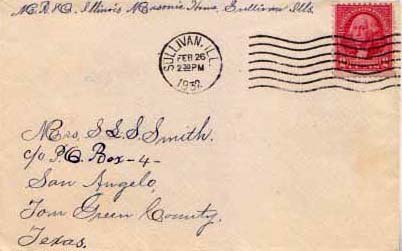 Illinois Masonic Home, Sullivan Ills.
SULLIVAN, ILL.
FEB 26
2 PM
1932
Mrs. S. L. S. Smith.
c/o P.O. Box-4-
San Angelo,
Tom Green County,
Texas.